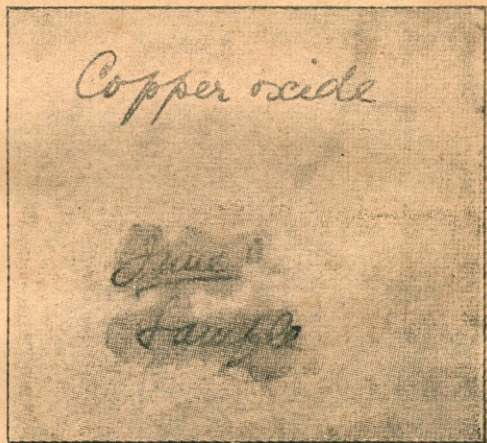 Copper oxide
June
Sample